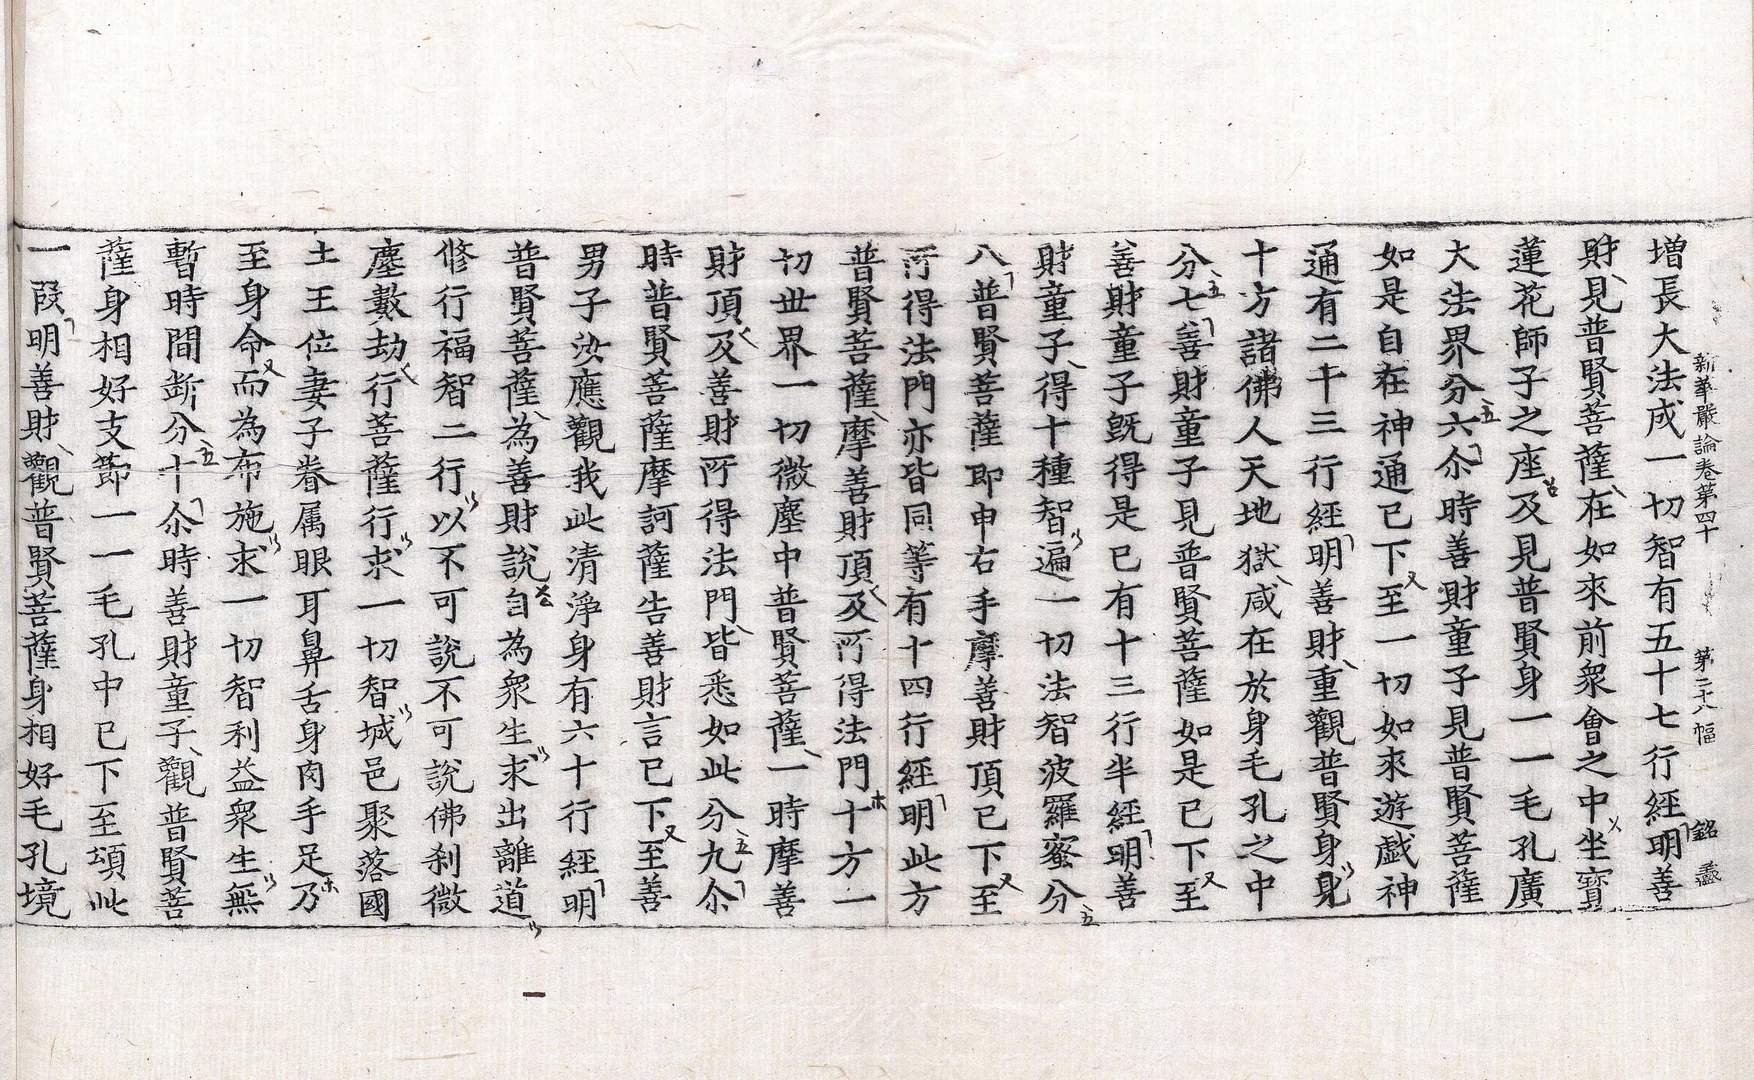 新華嚴論卷第四十 第二十八幅 銘 盞
增長大法成一切智有五十七行經明善
財見普賢菩薩在如來前衆會之中坐寶
蓮花師子之座及見普賢身一一毛孔廣
大法界分六尒時善財童子見普賢菩薩
如是自在神通已下至一切如來遊戲神
通有二十三行經明善財重觀普賢身身
十方諸佛人天地獄咸在於身毛孔之中
分七善財童子見普賢菩薩如是已下至
善財童子旣得是已有十三行半經明善
財童子得十種智遍一切法智波羅蜜分
八普賢菩薩即申右手摩善財頂已下至
所得法門亦皆同等有十四行經明此方
普賢菩薩摩善財頂及所得法門十方一
切世界一切微塵中普賢菩薩一時摩善
財頂及善財所得法門皆悉如此分九尒
時普賢菩薩摩訶薩告善財言已下至善
男子汝應觀我此清淨身有六十行經明
普賢菩薩為善財說自為衆生求出離道
修行福智二行以不可說不可說佛刹微
塵數劫行菩薩行求一切智城邑聚落國
土王位妻子眷属眼耳鼻舌身肉手足乃
至身命而為布施求一切智利益衆生無
暫時間断分十尒時善財童子觀普賢菩
薩身相好支節一一毛孔中已下至頌此
一段明善財觀普賢菩薩身相好毛孔境